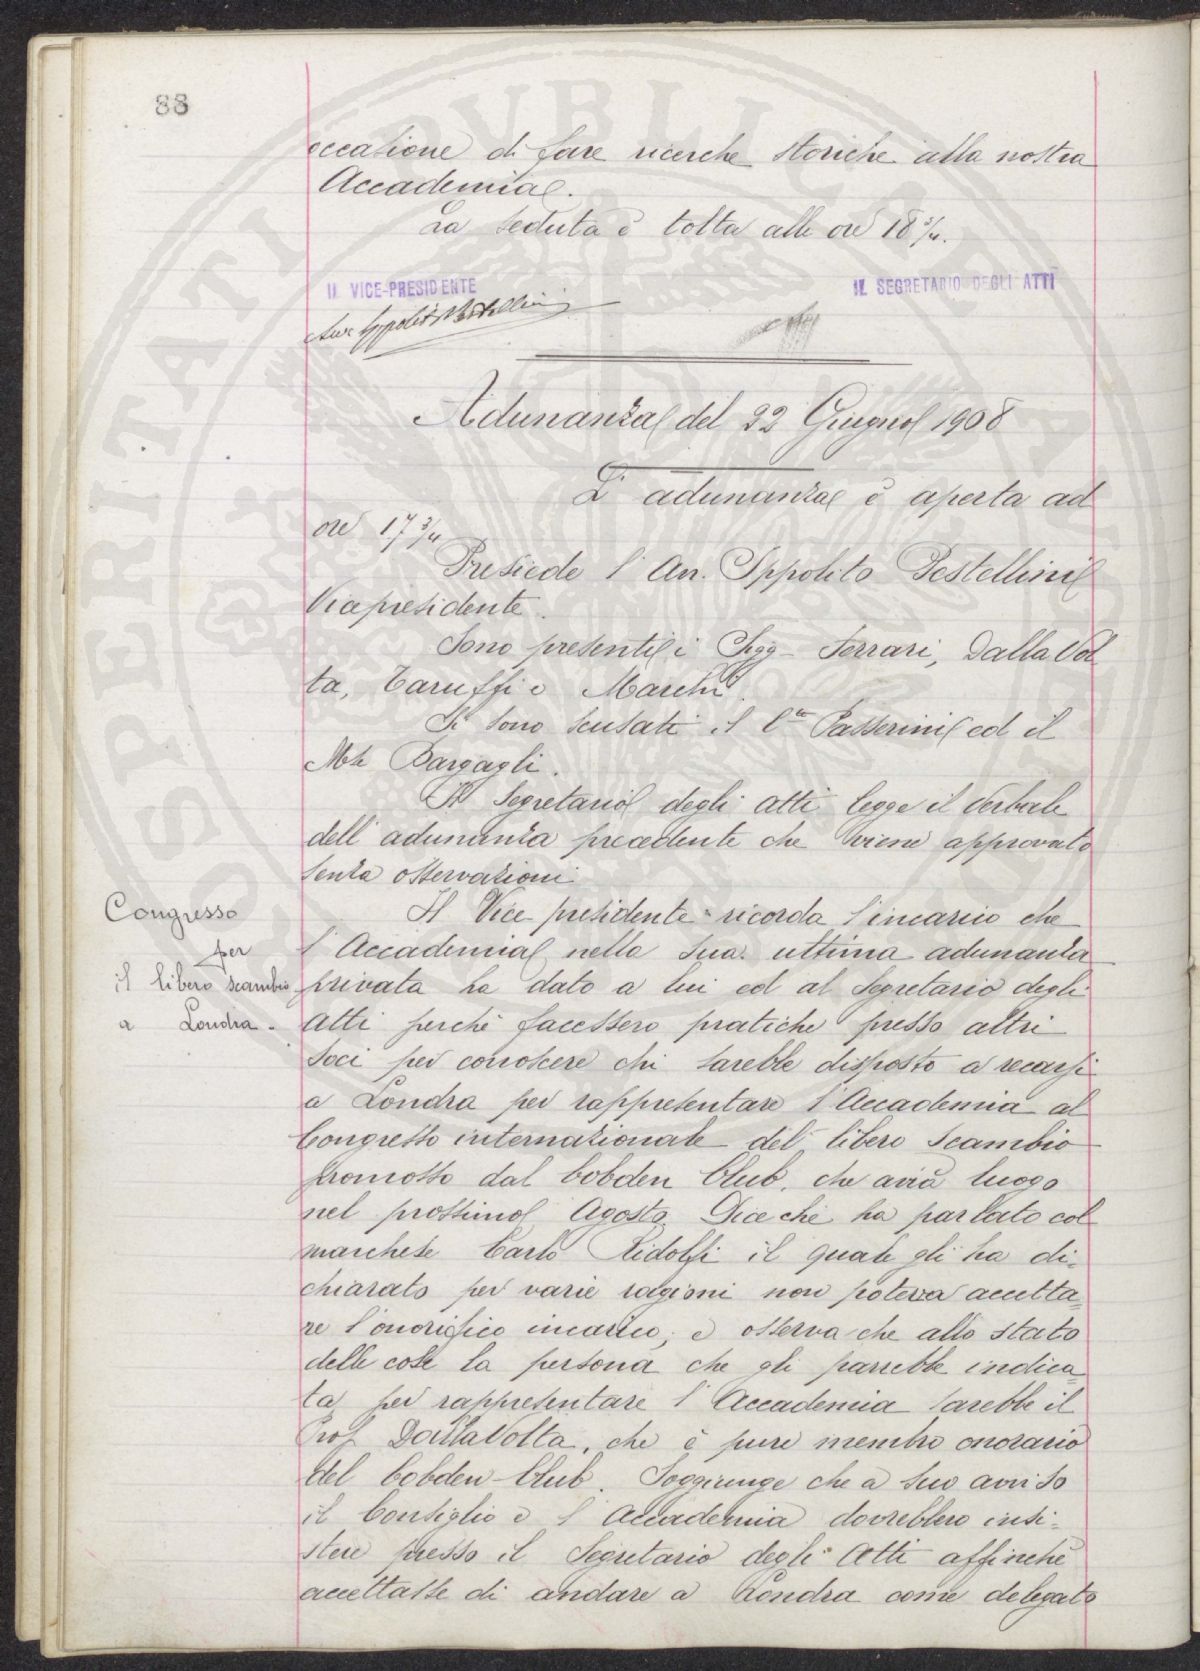 88
occasione di fare ricerche storiche alla nostra
Accademia.
La seduta è tolta alle ore 18 3/4.
IL VICE-PRESIDENTE
IL SEGRETARIO DEGLI ATTI
Avv. Ippolito Pestellini
Adunanza del 22 Giugno 1908
L'adunanza è aperta ad
ore 17 3/4
Presiede l'Avv. Ippolito Pestellini
Vicepresidente.
Sono presenti i Sigg. Ferrari, Dalla Vol
ta, Taruffi e Marchi.
Si sono scusati il C.te Passerini ed il
M.se Bargagli.
Il Segretario degli atti legge il Verbale
dell'adunanza precedente che viene approvato
senza osservazioni.
Congresso
per
il libero scambio
a Londra.
Il Vice presidente ricorda l'incarico che
l'Accademia nella sua ultima adunanza
privata ha dato a lui ed al Segretario degli
Atti perchè facessero pratiche presso altri
soci per conoscere chi sarebbe disposto a recarsi
a Londra per rappresentare l'Accademia al
Congresso internazionale del libero scambio
promosso dal Cobden Club, che avrà luogo
nel prossimo Agosto. Dice che ha parlato col
marchese Carlo Ridolfi il quale gli ha di=
chiarato per varie ragioni non poteva accetta=
re l'onorifico incarico; e osserva che allo stato
delle cose la persona che gli parrebbe indica=
ta per rappresentare l'Accademia sarebbe il
Prof. Dalla Volta, che è pure membro onorario
del Cobden Club. Soggiunge che a suo avviso
il Consiglio e l'Accademia dovrebbero insi=
stere presso il Segretario degli Atti affinchè
accettasse di andare a Londra come delegato
PROSPERITATI PUBLICAE AUGENDAE